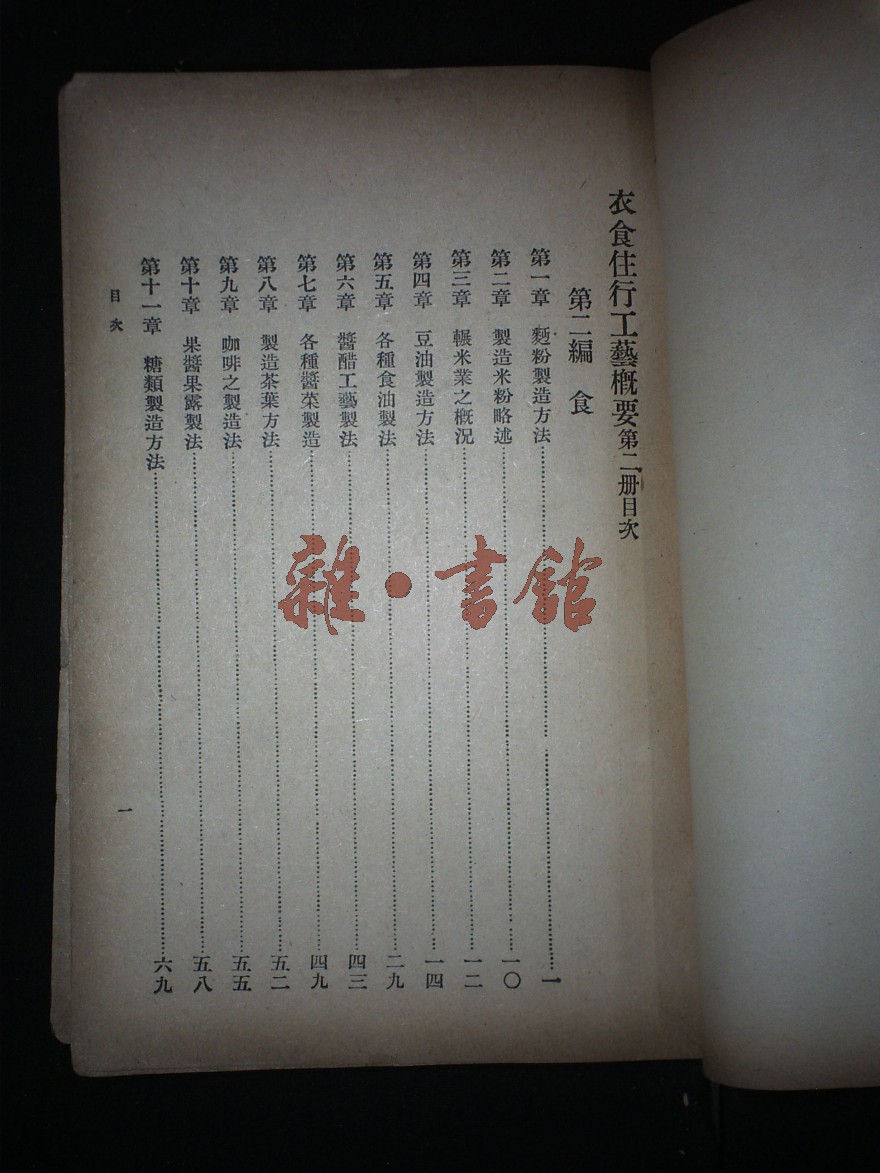 衣食住行工藝概要第二册目次
第二編 食
第一章 麵粉製造方法 一
第二章 製造米粉略述 一〇
第三章 輾米業之概況 一二
第四章 豆油製造方法 一四
第五章 各種食油製法 二九
第六章 醬醋工藝製法 四三
第七章 各種醬菜製造 四九
第八章 製造茶葉方法 五二
第九章 咖啡之製造法 五五
第十章 果醬果露製法 五八
第十一章 糖類製造方法 六九
目次
一
雜·書館